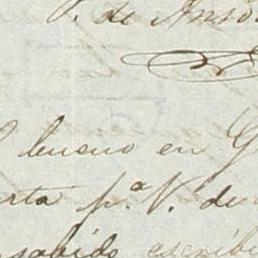 V. de Anso
bueno en G
rta p.ª V. de
sabido escribi